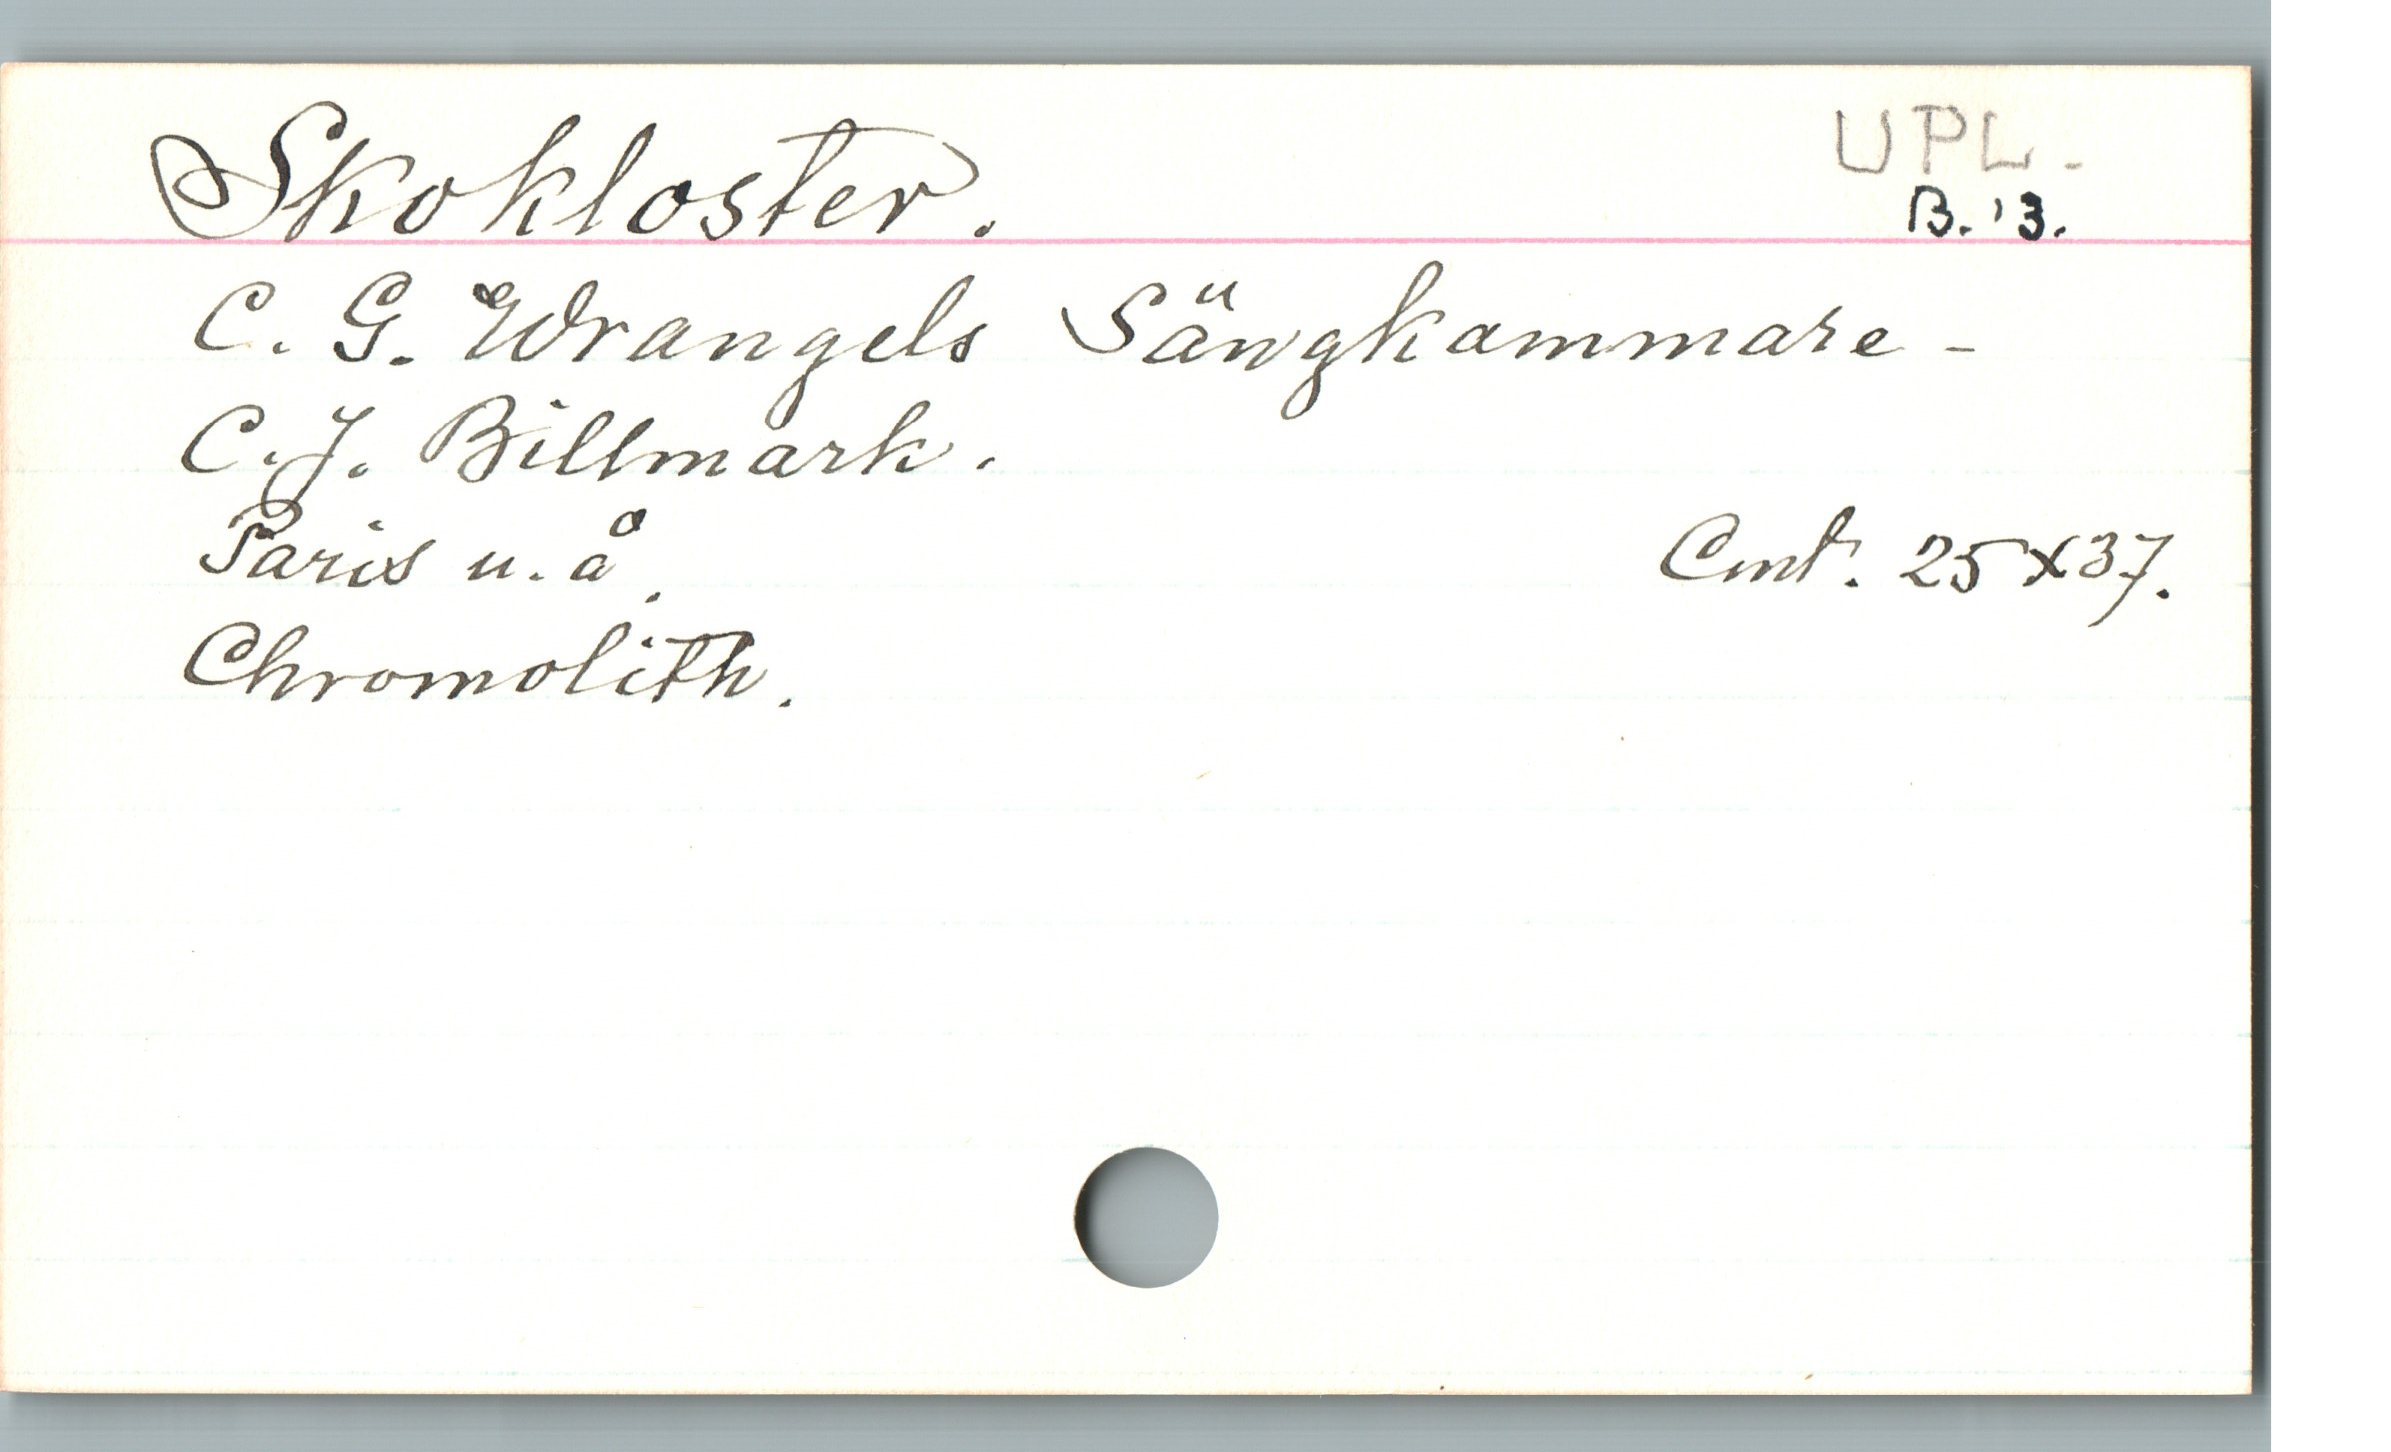 Skokloster.
UPL.
B. 13.
C. G. Wrangels Sängkammare -
C. J. Billmark.
Paris u. å.
Cmt. 25x37.
Chromolith.